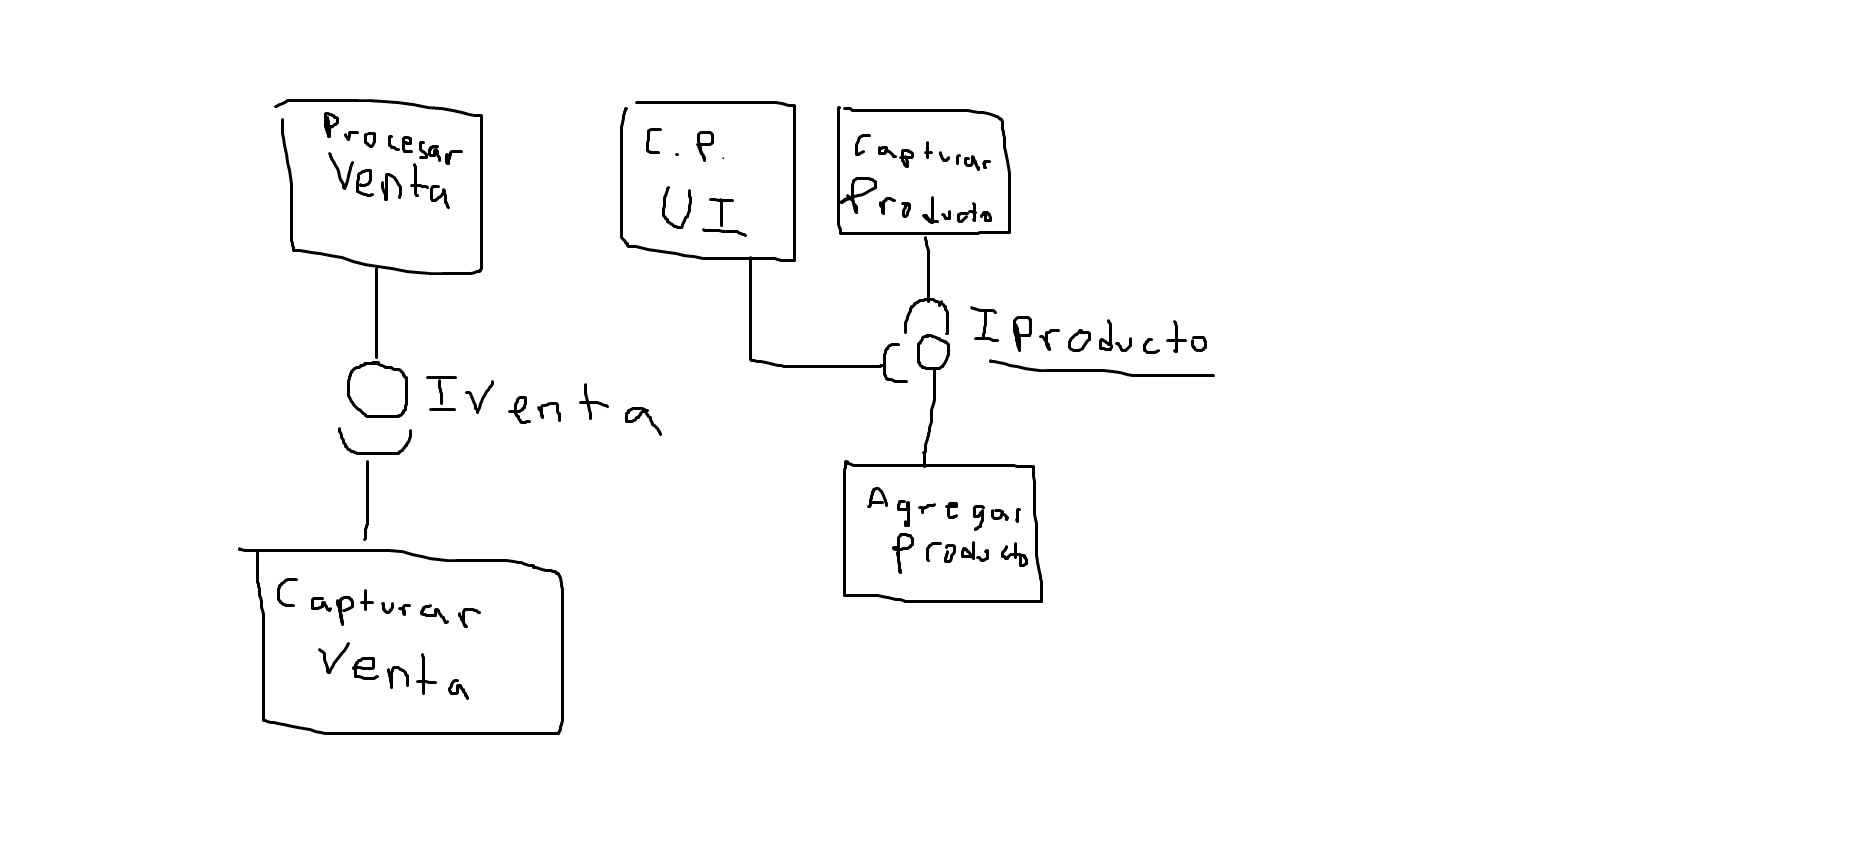 Procesar
Venta
IVenta
Capturar
Venta
C.P.
UI
Capturar
Producto
IProducto
Agregar
Producto